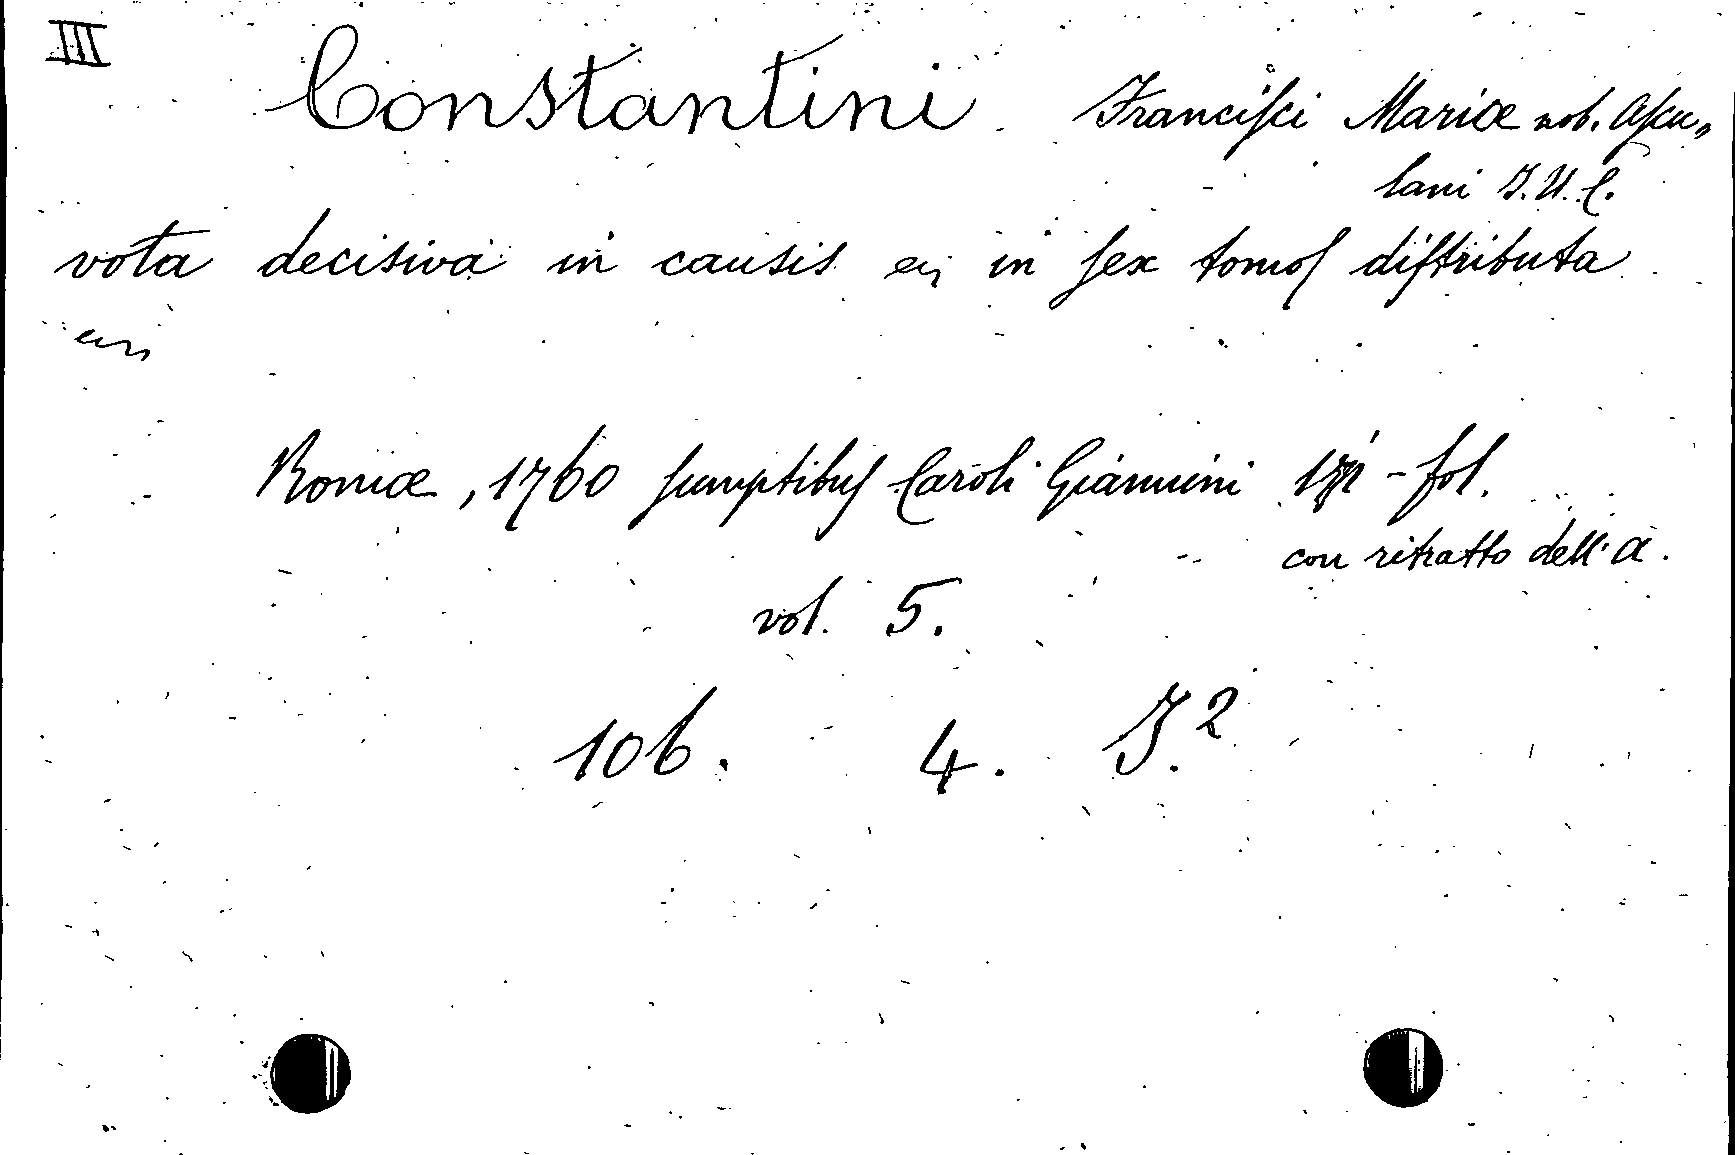 III
Constantini Franciſci Mariæ nob. Aſcu„
lani J. U. C.
vota decisiva in causis in ſex tomoſ diſtributa
Romæ, 1760 ſumptibuſ Caroli Giannini - fol.
con ritratto dell'a.
vol. 5.
106. 4. J.²